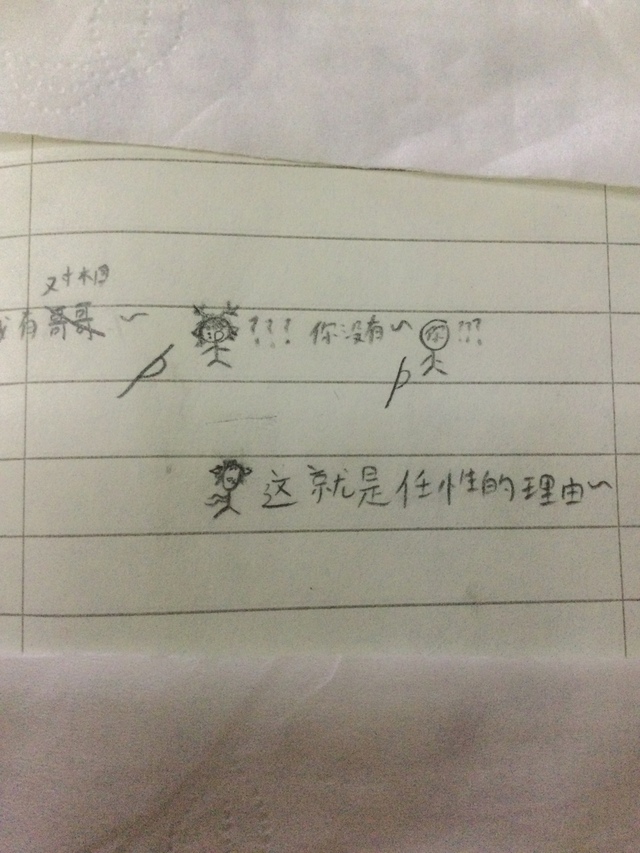 对相
我有哥哥～！？！？！？你没有～你？？？
这就是任性的理由～